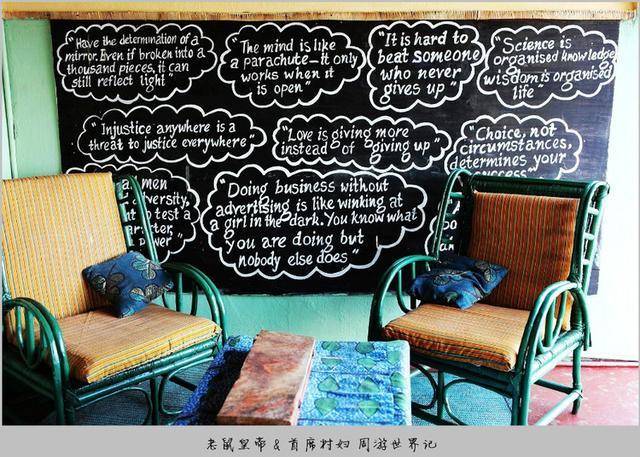 "Have the determination of a
mirror. Even if broken into a
thousand pieces, it can
still reflect light"
"The mind is like
a parachute-it only
works when it
is open"
"It is hard to
beat someone
who never
gives up"
"Science is
organised knowladge
wisdom is organised
life"
"Injustice anywhere is a
threat to justice everywhere"
"Love is giving more
instead of giving up"
"Choice, not
circumstances,
determines your
success"
men
adversity,
to test a
power"
"Doing business without
advertising is like winking at
a girl in the dark. You know what
you are doing but
nobody else does"
老鼠皇帝 & 首席村妇 周游世界记